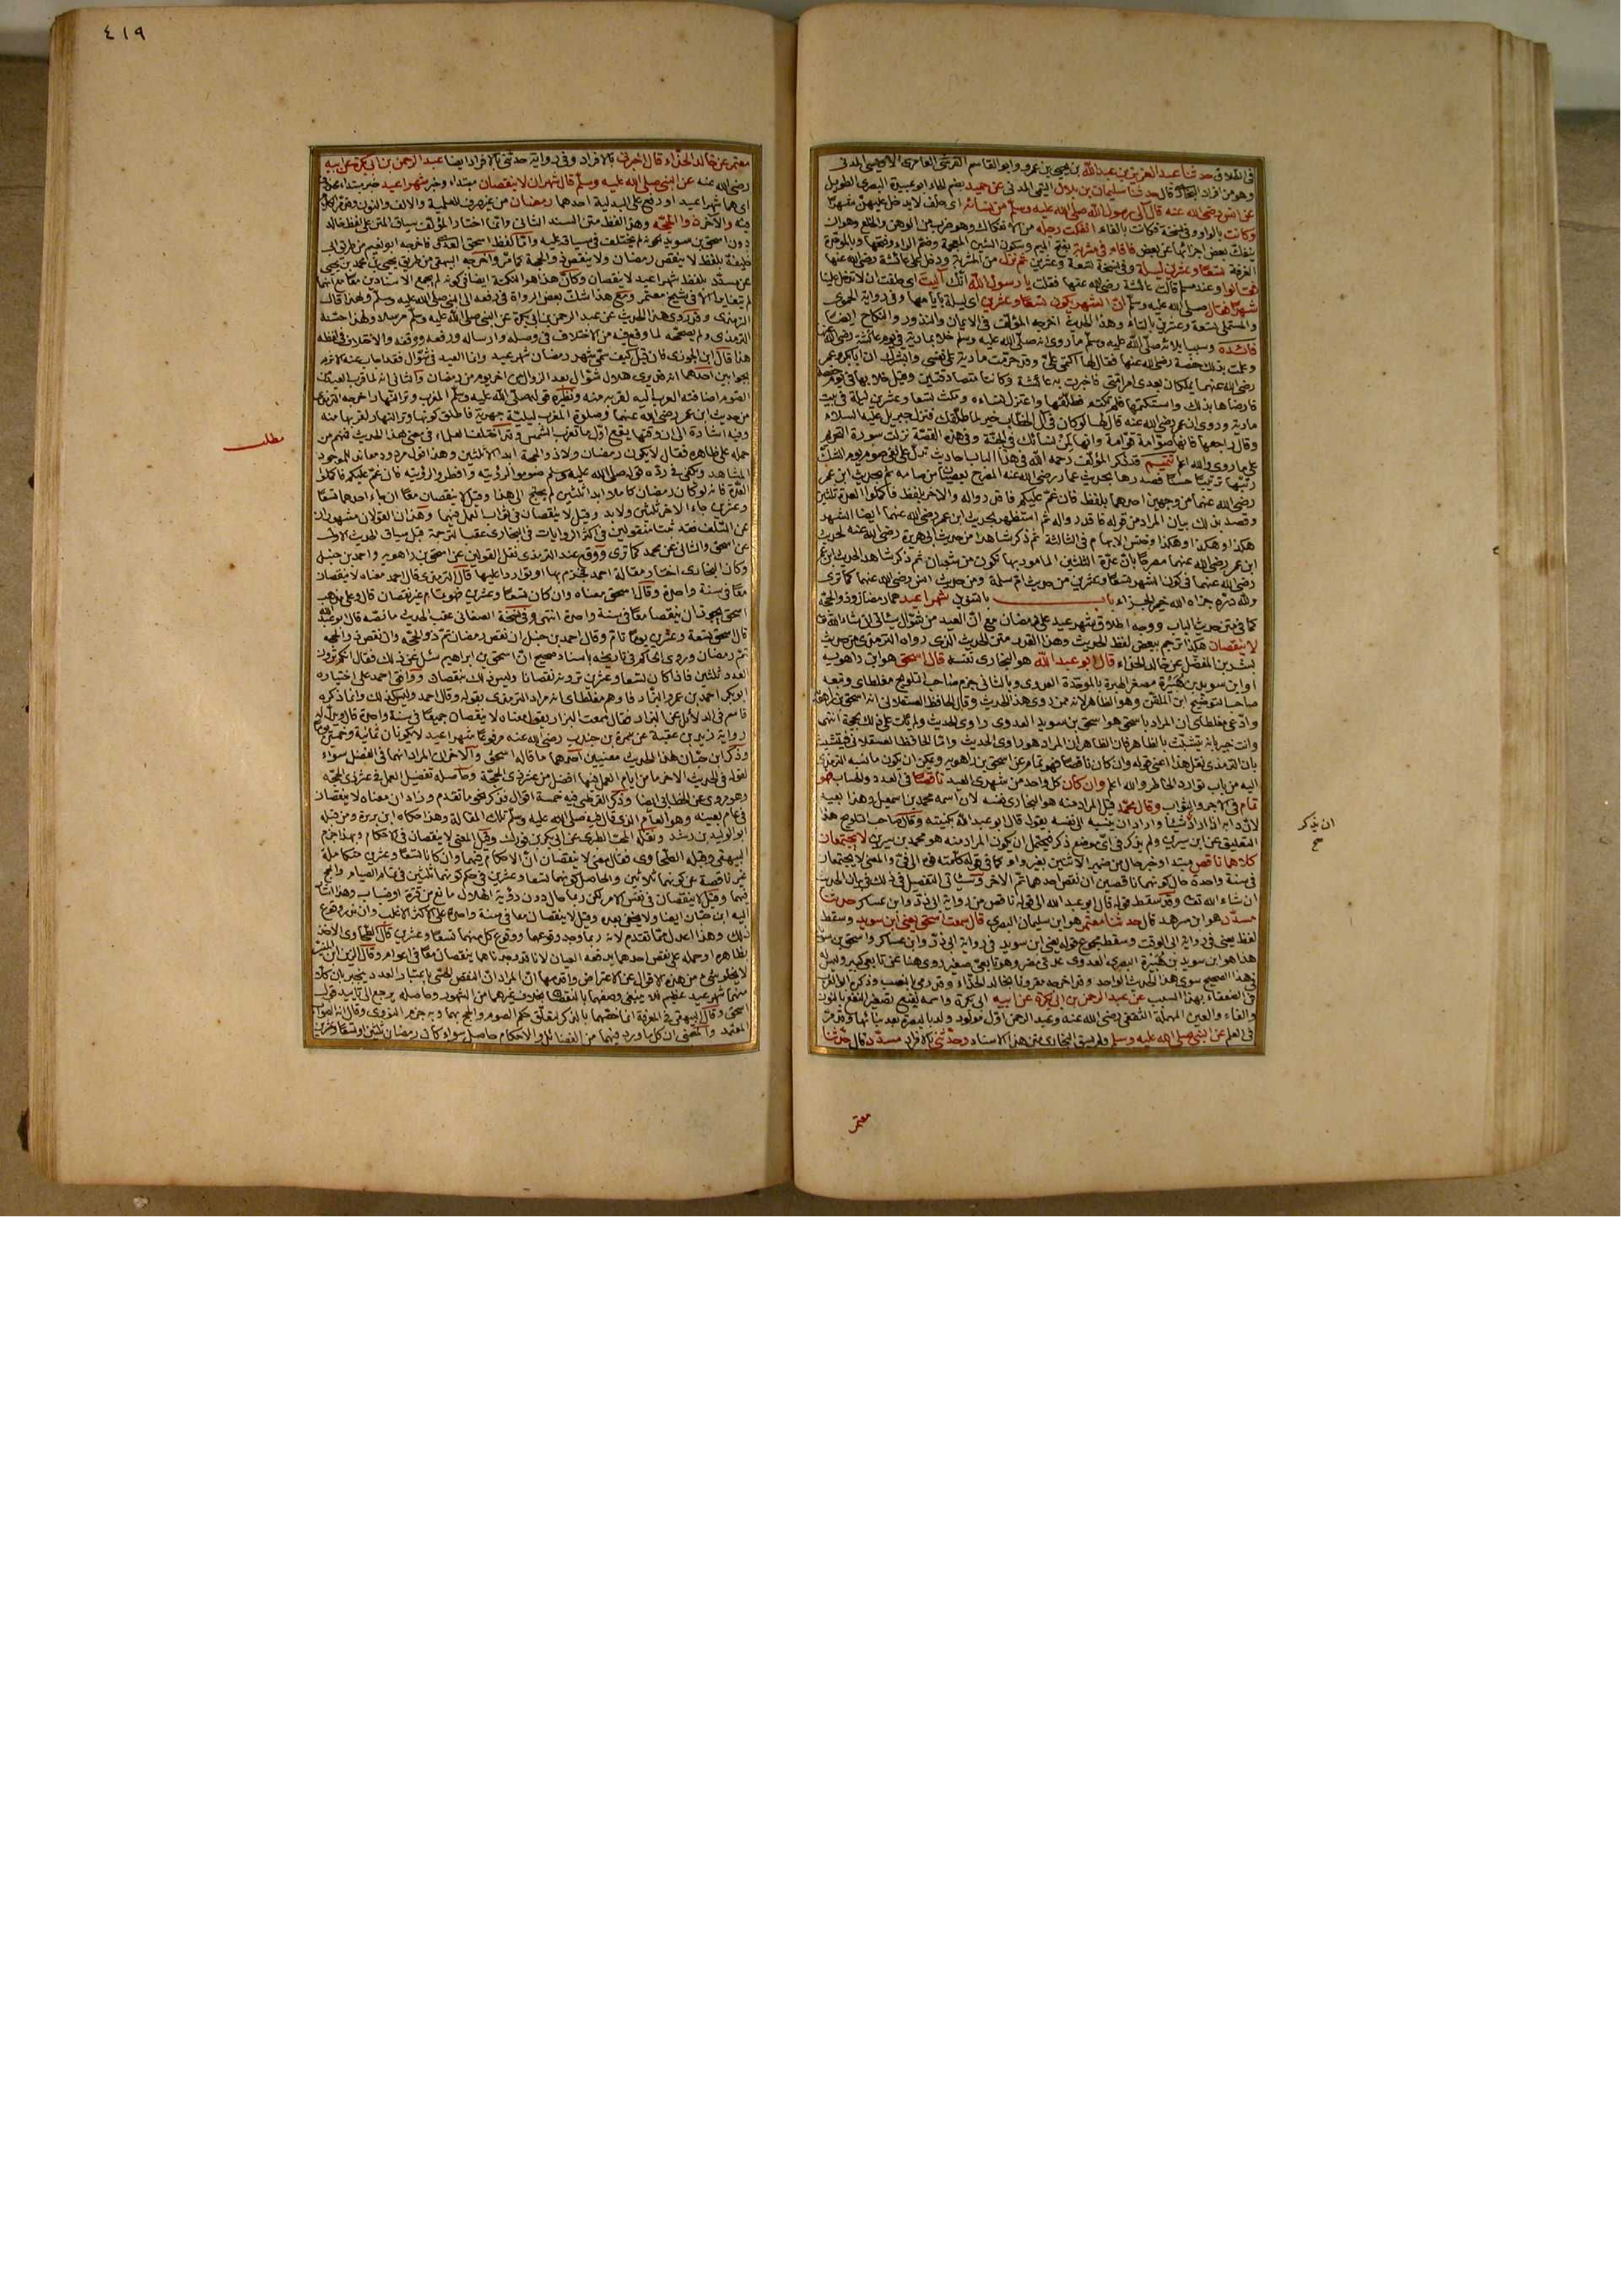 في الطلاق حدثنا عبد العزيز بن عبد الله بن يحيى بن عمرو وابو القاسم القرشي العامري الاويسي المدني
وهو من افراد البخاري قال حدثنا سليمان بن بلال التيمي المدني عن حميد بضم الحاء ابو عبيدة البصري الطويل
عن انس رضي الله عنه قال آلى رسول الله صلى الله عليه وسلم من نسائه اي حلف لا يدخل عليهن شهرا
وكانت بالواو وفي نسخة فكانت بالفاء انفكت رجله من الانفكاك وهو ضرب من الوهن والخلع وهو ان
ينفك بعض اجزائها عن بعض فاقام في مشربة بفتح الميم وسكون الشين المعجمة وضم الراء وفتحها وبالموحدة
الغرفة تسعا وعشرين ليلة وفي نسخة تسعة وعشرين ثم نزل من المشربة ودخل على عائشة رضي الله عنها
فقالوا وعند مسلم قالت عائشة رضي الله عنها فقلت يا رسول الله انك آليت اي حلفت ان لا تدخل علينا
شهرا فقال صلى الله عليه وسلم ان الشهر يكون تسعا وعشرين اي ليلة بايامها وفي رواية الحموي
والمستملي تسعة وعشرين بالتاء وهذا الحديث اخرجه المؤلف في الايمان والنذور والنكاح ايضا
فائدة وسبب ايلائه صلى الله عليه وسلم ما روي انه صلى الله عليه وسلم خلا بمارية في يوم عائشة رضي الله عنها
وعلمت بذلك حفصة رضي الله عنها فقال لها اكتمي علي وقد حرمت مارية على نفسي وابشرك ان ابا بكر وعمر
رضي الله عنهما يملكان بعدي امر امتي فاخبرت به عائشة وكانتا متصادقتين وقيل خلا بها في يوم حفصة
فارضاها بذلك واستكتمها فلم تكتم فطلقها واعتزل نساءه ومكث تسعا وعشرين ليلة في بيت
مارية وروي ان عمر رضي الله عنه قال لها لو كان في آل الخطاب خير لما طلقك فنزل جبريل عليه السلام
وقال راجعها فانها صوامة قوامة وانها لمن نسائك في الجنة وفي هذه القصة نزلت سورة التحريم
على ما روي والله اعلم تتميم قد ذكر المؤلف رحمه الله في هذا الباب احاديث تدل على نفي صوم يوم الشك
رتبها ترتيبا حسنا فصدرها بحديث عمار رضي الله عنه المصرح بعصيان من صامه ثم بحديث ابن عمر
رضي الله عنهما من وجهين احدهما بلفظ فان غم عليكم فاقدروا له والآخر بلفظ فاكملوا العدة ثلثين
وقصد بذلك بيان المراد من قوله فاقدروا له ثم استظهر بحديث ابن عمر رضي الله عنهما ايضا الشهر
هكذا وهكذا وهكذا وخنس الابهام في الثالثة ثم ذكر شاهدا من حديث ابي هريرة رضي الله عنه لحديث
ابن عمر رضي الله عنهما مصرحا بان عدة الثلثين المامور بها تكون من شعبان ثم ذكر شاهدا لحديث ابن عمر
رضي الله عنهما في كون الشهر تسعا وعشرين من حديث ام سلمة ومن حديث انس رضي الله عنهما كما ترى
ولله دره جزاه الله خير الجزاء باب بالتنوين شهرا عيد هما رمضان وذو الحجة
كما في متن حديث الباب ووجه اطلاق شهر عيد على رمضان مع ان العيد من شوال سيأتي ان شاء الله تعالى
لا ينقصان هكذا ترجم ببعض لفظ الحديث وهذا القدر متن الحديث الذي رواه الترمذي من حديث
بشر بن المفضل عن خالد الحذاء قال ابو عبد الله هو البخاري نفسه قال اسحق هو ابن راهويه
او ابن سويد بن هبيرة مصغر الهبرة بالموحدة العدوي وبالثاني جزم صاحب التلويح مغلطاي وتبعه
صاحب التوضيح ابن الملقن وهو الظاهر لانه ممن روى هذا الحديث وقال الحافظ العسقلاني انه اسحق بن راهويه
وادعى مغلطاي ان المراد باسحق هو اسحق بن سويد العدوي راوي الحديث ولم يأت على ذلك بحجة انتهى
وانت خبير بانه يتشبث بالظاهر فان الظاهر ان المراد هو راوي الحديث واما الحافظ العسقلاني فيتشبث
بان الترمذي نقل هذا اعني قوله وان كان ناقصا فهو تمام عن اسحق بن راهويه ويمكن ان يكون ما نسبه الترمذي
اليه من باب توارد الخاطر والله اعلم وان كان كل واحد من شهري العيد ناقصا في العدد والحساب فهو
تمام في الاجر والثواب وقال محمد قيل المراد منه هو البخاري نفسه لان اسمه محمد بن اسمعيل وهذا بعيد
لان دابه اذا اراد شيئا واراد ان ينسبه الى نفسه يقول قال ابو عبد الله بكنيته وقال صاحب التلويح هذا
التعليق عن ابن سيرين ولم يذكر في اي موضع ذكر فيحتمل ان يكون المراد منه هو محمد بن سيرين لا يجتمعان
كلاهما ناقص مبتدا وخبر حال من ضمير الاثنين بغير واو كما في قوله كلمته فوه الى في والمعنى لا يجتمعان
في سنة واحدة حال كونهما ناقصين ان نقص احدهما تم الآخر وسيأتي التفصيل في ذلك في بيان الحديث
ان شاء الله تعالى وقد سقط قوله قال ابو عبد الله الى قوله ناقص من رواية ابي ذر وابن عساكر حدثنا
مسدد هو ابن مسرهد قال حدثنا معتمر هو ابن سليمان البصري قال سمعت اسحق يعني ابن سويد وسقط
لفظ يعني في رواية ابي الوقت وسقط مجموع قوله يعني ابن سويد في رواية ابي ذر وابن عساكر واسحق بن سويد
هذا هو ابن سويد بن هبيرة البصري العدوي عدي مضر وهو تابعي صغير روى هنا عن تابعي كبير وليس له
في هذا الصحيح سوى هذا الحديث الواحد وقد اخرجه مقرونا بخالد الحذاء وقد رمي بالنصب وذكره ابو العرب
في الضعفاء بهذا السبب عن عبد الرحمن بن ابي بكرة عن ابيه ابي بكرة واسمه نفيع تصغير النفع بالنون
والفاء والعين المهملة الثقفي رضي الله عنه وعبد الرحمن اول مولود ولد بالبصرة بعد بنائها وقد مر
في العلم عن النبي صلى الله عليه وسلم ولم يسق البخاري متن هذا الاسناد وحدثني بالافراد مسدد قال حدثنا
معتمر
ان يذكر
صح
٤١٩
معتمر عن خالد الحذاء قال اخبرني بالافراد وفي رواية حدثني بالافراد ايضا عبد الرحمن بن ابي بكرة عن ابيه
رضي الله عنه عن النبي صلى الله عليه وسلم قال شهران لا ينقصان مبتدا وخبر شهرا عيد خبر مبتدا محذوف
اي هما شهرا عيد او رفع على البدلية احدهما رمضان من غير صرف للعلمية والالف والنون
والآخر ذو الحجة وهذا لفظ متن السند الثاني وانما اختار المؤلف سياق المتن على لفظ خالد
دون اسحق بن سويد لكونه لم يختلف في سياقه عليه واما لفظ اسحق العدوي فاخرجه ابو نعيم من طريق ابي
خليفة بلفظ لا ينقص رمضان ولا ينقص ذو الحجة كما مر واخرجه البيهقي من طريق يحيى بن محمد بن يحيى
عن مسدد بلفظ شهرا عيد لا ينقصان وكأن هذا هو النكتة ايضا في كونه لم يجمع الاسنادين معا مع انهما
لم يتغايرا الا في شيخ معتمر ومع هذا شك بعض الرواة في رفعه الى النبي صلى الله عليه وسلم ولهذا قال
الترمذي وقد روي هذا الحديث عن عبد الرحمن بن ابي بكرة عن النبي صلى الله عليه وسلم مرسلا ولهذا حسنه
الترمذي ولم يصححه لما وقع فيه من الاختلاف في وصله وارساله ورفعه ووقفه والاختلاف في لفظه
هذا قال ابن الجوزي فان قيل كيف سمي شهر رمضان شهر عيد وانما العيد في شوال فقد اجاب عنه الاثرم
بجوابين احدهما انه قد يرى هلال شوال بعد الزوال من آخر يوم من رمضان والثاني انه لما قرب العيد من
الصوم اضافته العرب اليه لقربه منه ونظيره قوله صلى الله عليه وسلم المغرب وتر النهار اخرجه الترمذي
من حديث ابن عمر رضي الله عنهما وصلوة المغرب ليلية جهرية فاطلق كونها وتر النهار لقربها منه
وفيه اشارة الى ان وقتها يقع اول ما تغرب الشمس وقد اختلف العلماء في معنى هذا الحديث فمنهم من
حمله على ظاهره فقال لا يكون رمضان ولا ذو الحجة ابدا الا ثلثين وهذا قول مردود معاند للموجود
المشاهد ويكفي في رده قوله صلى الله عليه وسلم صوموا لرؤيته وافطروا لرؤيته فان غم عليكم فاكملوا
العدة فانه لو كان رمضان كاملا ابدا ثلثين لم يحتج الى هذا وقيل لا ينقصان معا ان جاء احدهما تسعا
وعشرين جاء الآخر ثلثين ولا بد وقيل لا ينقصان في ثواب العمل فيهما وهذان القولان مشهوران
عن السلف فقد ثبتا منقولين في اكثر الروايات في البخاري عقب الترجمة قبل سياق الحديث الاول
عن اسحق والثاني عن محمد كما ترى ووقع عند الترمذي نقل القولين عن اسحق بن راهويه واحمد بن حنبل
وكان البخاري اختار مقالة احمد فجزم بها او تواردا عليها قال الترمذي وقال احمد معناه لا ينقصان
معا في سنة واحدة وقال اسحق معناه وان كان تسعا وعشرين فهو تمام غير نقصان قال وعلى مذهب
اسحق يجوز ان ينقصا معا في سنة واحدة انتهى وفي نسخة الصغاني عقب الحديث ما نصه قال ابو عبد الله
قال اسحق تسعة وعشرين يوما تام وقال احمد بن حنبل ان نقص رمضان تم ذو الحجة وان نقص ذو الحجة
تم رمضان وروى الحاكم في تاريخه باسناد صحيح ان اسحق بن ابراهيم سئل عن ذلك فقال انكم ترون
العدد ثلثين فاذا كان تسعا وعشرين ترونه نقصانا وليس ذلك بنقصان ووافق احمد على اختياره
ابو بكر احمد بن عمرو البزار فاوهم مغلطاي انه مراد الترمذي بقوله وقال احمد وليس كذلك وانما ذكره
قاسم في الدلائل عن البزار فقال سمعت البزار يقول معناه لا ينقصان جميعا في سنة واحدة قال ويدل له
رواية زيد بن عقبة عن سمرة بن جندب رضي الله عنه مرفوعا شهرا عيد لا يكونان ثمانية وخمسين يوما
وذكر ابن حبان لهذا الحديث معنيين احدهما ما قاله اسحق والآخر ان المراد انهما في الفضل سواء
لقوله في الحديث الآخر ما من ايام العمل فيها افضل من عشر ذي الحجة وحاصله تفضيل العمل في عشر ذي الحجة
وهو مروي عن الخطابي ايضا وذكر القرطبي فيه خمسة اقوال فذكر نحو ما تقدم وزاد ان معناه لا ينقصان
في عام بعينه وهو العام الذي قال فيه صلى الله عليه وسلم تلك المقالة وهذا حكاه ابن بزيزة ومن قبله
ابو الوليد بن رشد ونقله المحب الطبري عن ابي بكر بن فورك وقيل المعنى لا ينقصان في الاحكام وبهذا جزم
البيهقي وقبله الطحاوي فقال معنى لا ينقصان ان الاحكام فيهما وان كانا تسعا وعشرين متكاملة
غير ناقصة عن كونهما ثلاثين والحاصل كونهما تسعا وعشرين في حكم كونهما ثلثين في تمام الصيام والحج
فيهما وقيل لا ينقصان في نفس الامر لكن ربما حال دون رؤية الهلال مانع من قترة او ضباب وهذا اشار
اليه ابن حبان ايضا ولا يخفى بعده وقيل لا ينقصان معا في سنة واحدة على الاكثر الاغلب وان ندر وقوع
ذلك وهذا اعدل مما تقدم لانه ربما وجد وقوعهما ووقوع كل منهما تسعا وعشرين قال الطحاوي الاخذ
بظاهره او حمله على نقص احدهما يدفعه العيان لانا قد وجدناهما ينقصان معا في اعوام وقال الزين ابن المنير
لا يخلو شيء من هذه الاقوال عن الاعتراض واقربها ان المراد ان النقص الحسي باعتبار العدد ينجبر بان كلا
منهما شهر عيد عظيم فلا ينبغي وصفهما بالنقصان بخلاف غيرهما من الشهور وحاصله يرجع الى تاييد قول
اسحق وقال البيهقي في المعرفة انما خصهما بالذكر لتعلق حكم الصوم والحج بهما وبه جزم النووي وقال انه الصواب
المعتمد والمعنى ان كل ما ورد فيهما من الفضائل والاحكام حاصل سواء كان رمضان ثلثين او تسعا وعشرين
مطلب